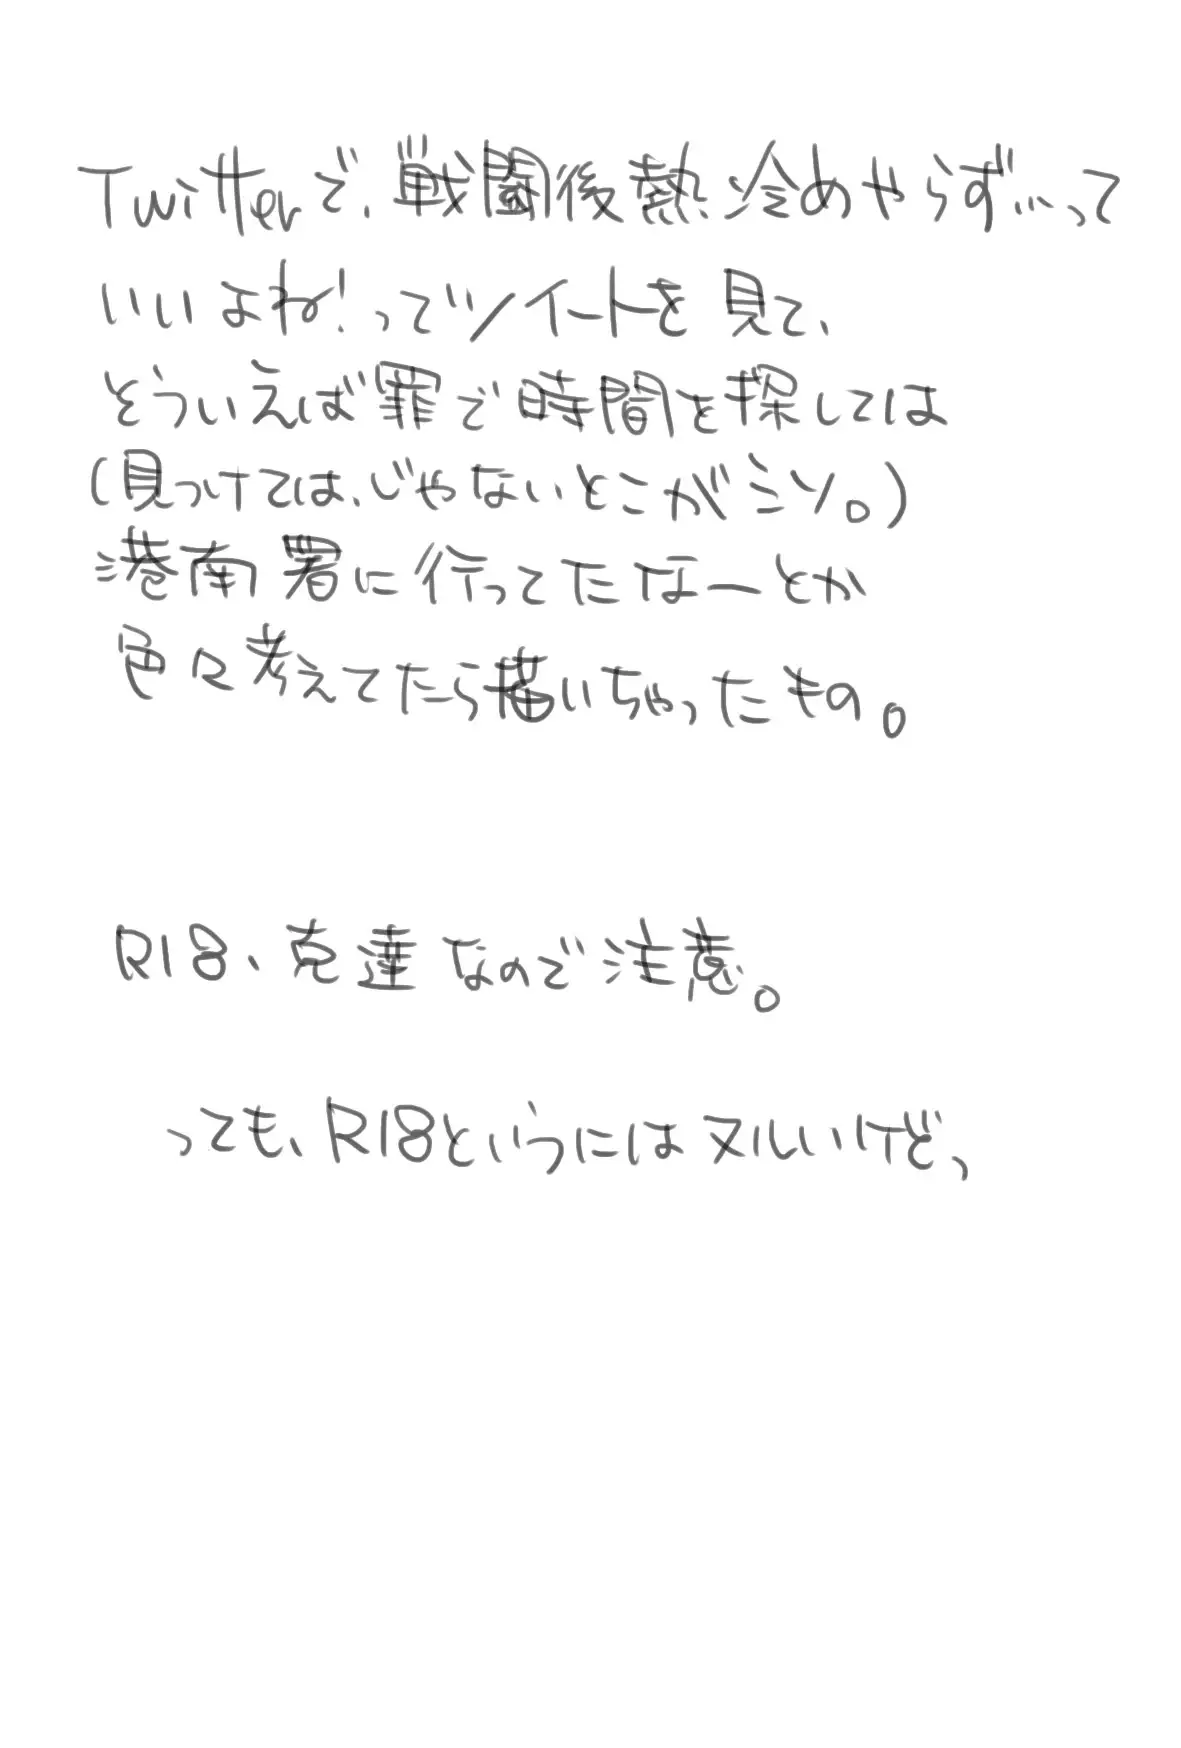 Twitterで、戦闘後熱冷めやらず…って
いいよね!ってツイートを見て、
どういえば罪で時間を探しては
(見つけては、じゃないとこがミソ。)
港南署に行ってたなーとか
色々考えてたら描いちゃったもの。
R18、克達なので注意。
っても、R18というにはヌルいけど、